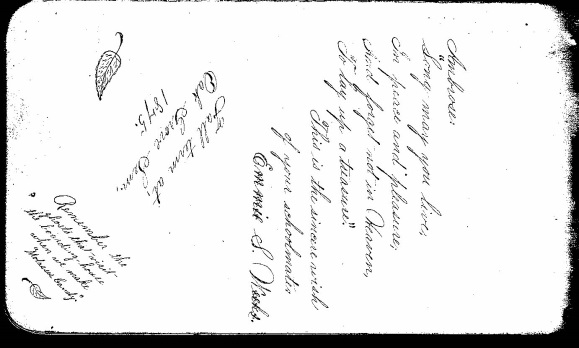 Ambrose:
"Long may you live,
In peace and pleasure,
And forget not in Heaven,
To lay up a treasure."
This is the sincere wish
of your schoolmate
Emmie S. Weeks.
Fall term at,
Oak Grove Sem.,
1875.
Remember the
visit
boarding house
when we made
"Molasses Candy"